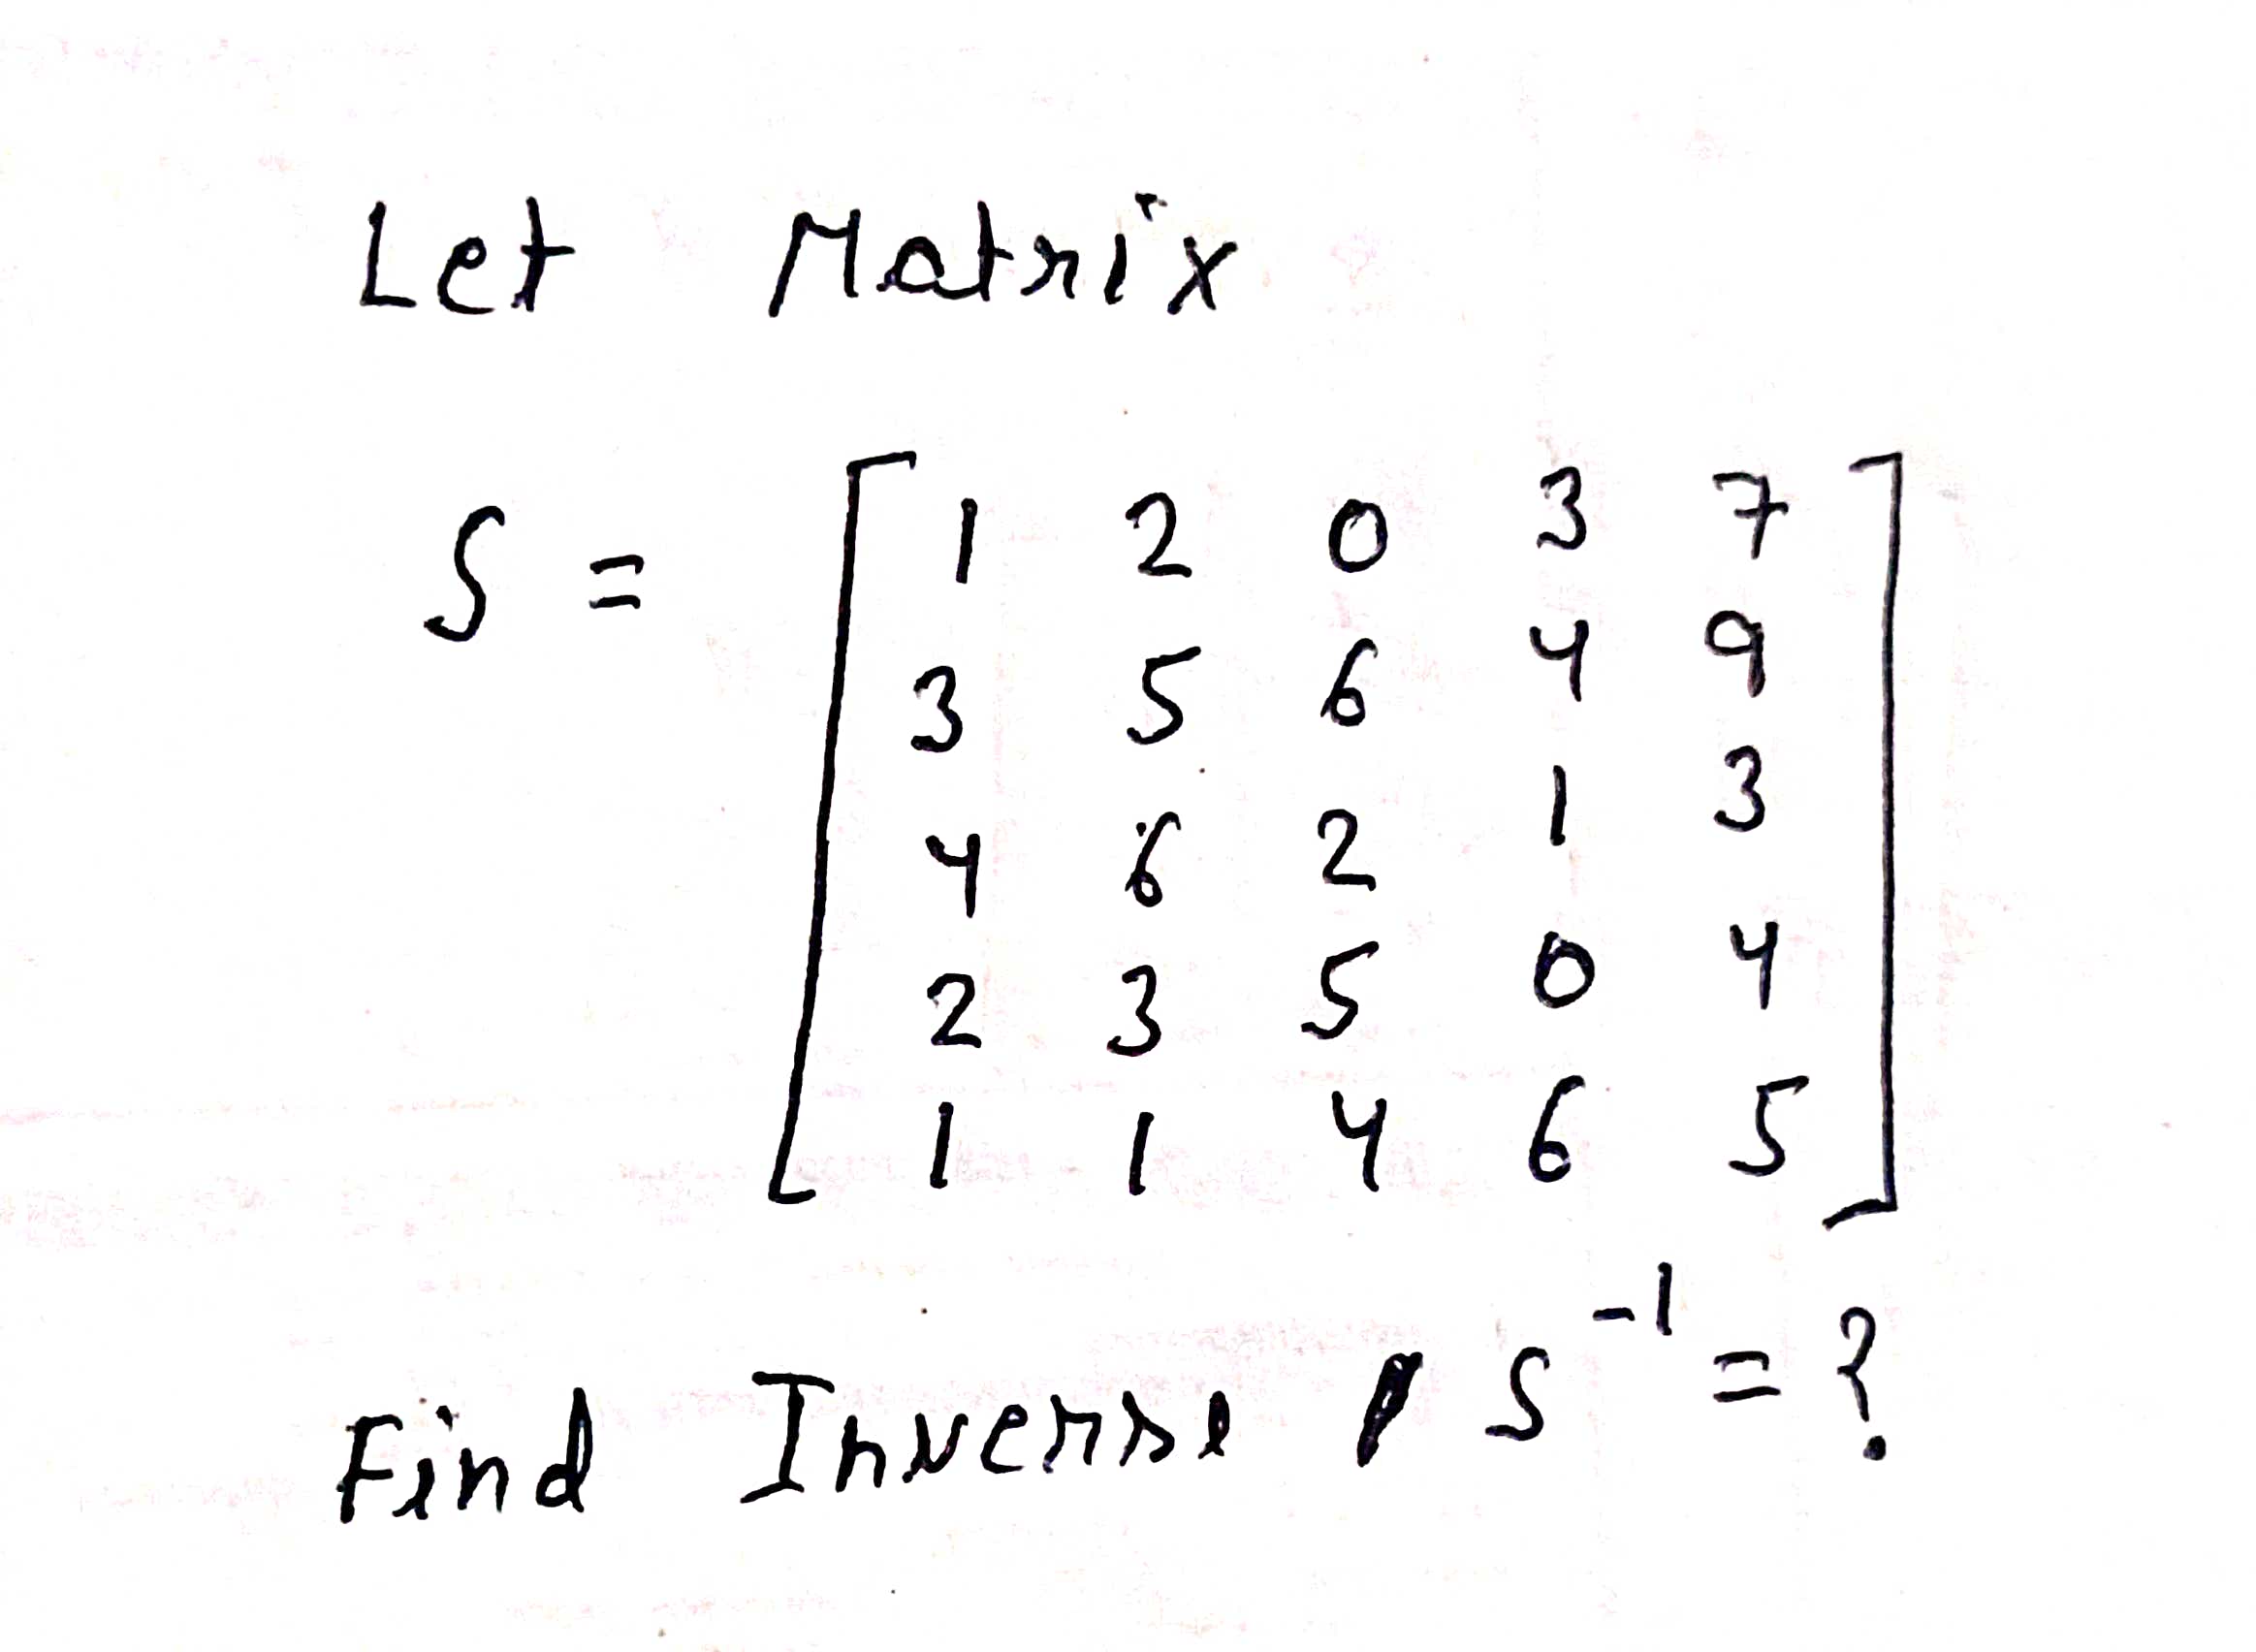 Let Matrix
S = [ 1 2 0 3 7
3 5 6 4 9
4 6 2 1 3
2 3 5 0 4
1 1 4 6 5 ]
Find Inverse S⁻¹ = ?